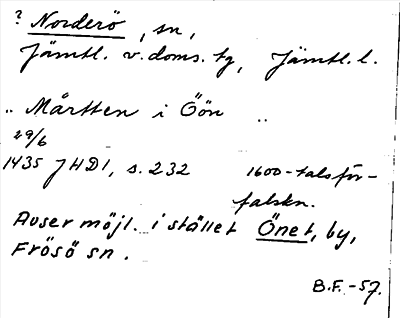 ? Norderö, sn,
Jämtl. v. doms. tg, Jämtl. l.
.. Mårtten i Öön ..
29/6
1435 JHD1, s. 232 1600-talsför-
falskn.
Avser möjl. i stället Önet, by,
Frösö sn.
B.F.-57.